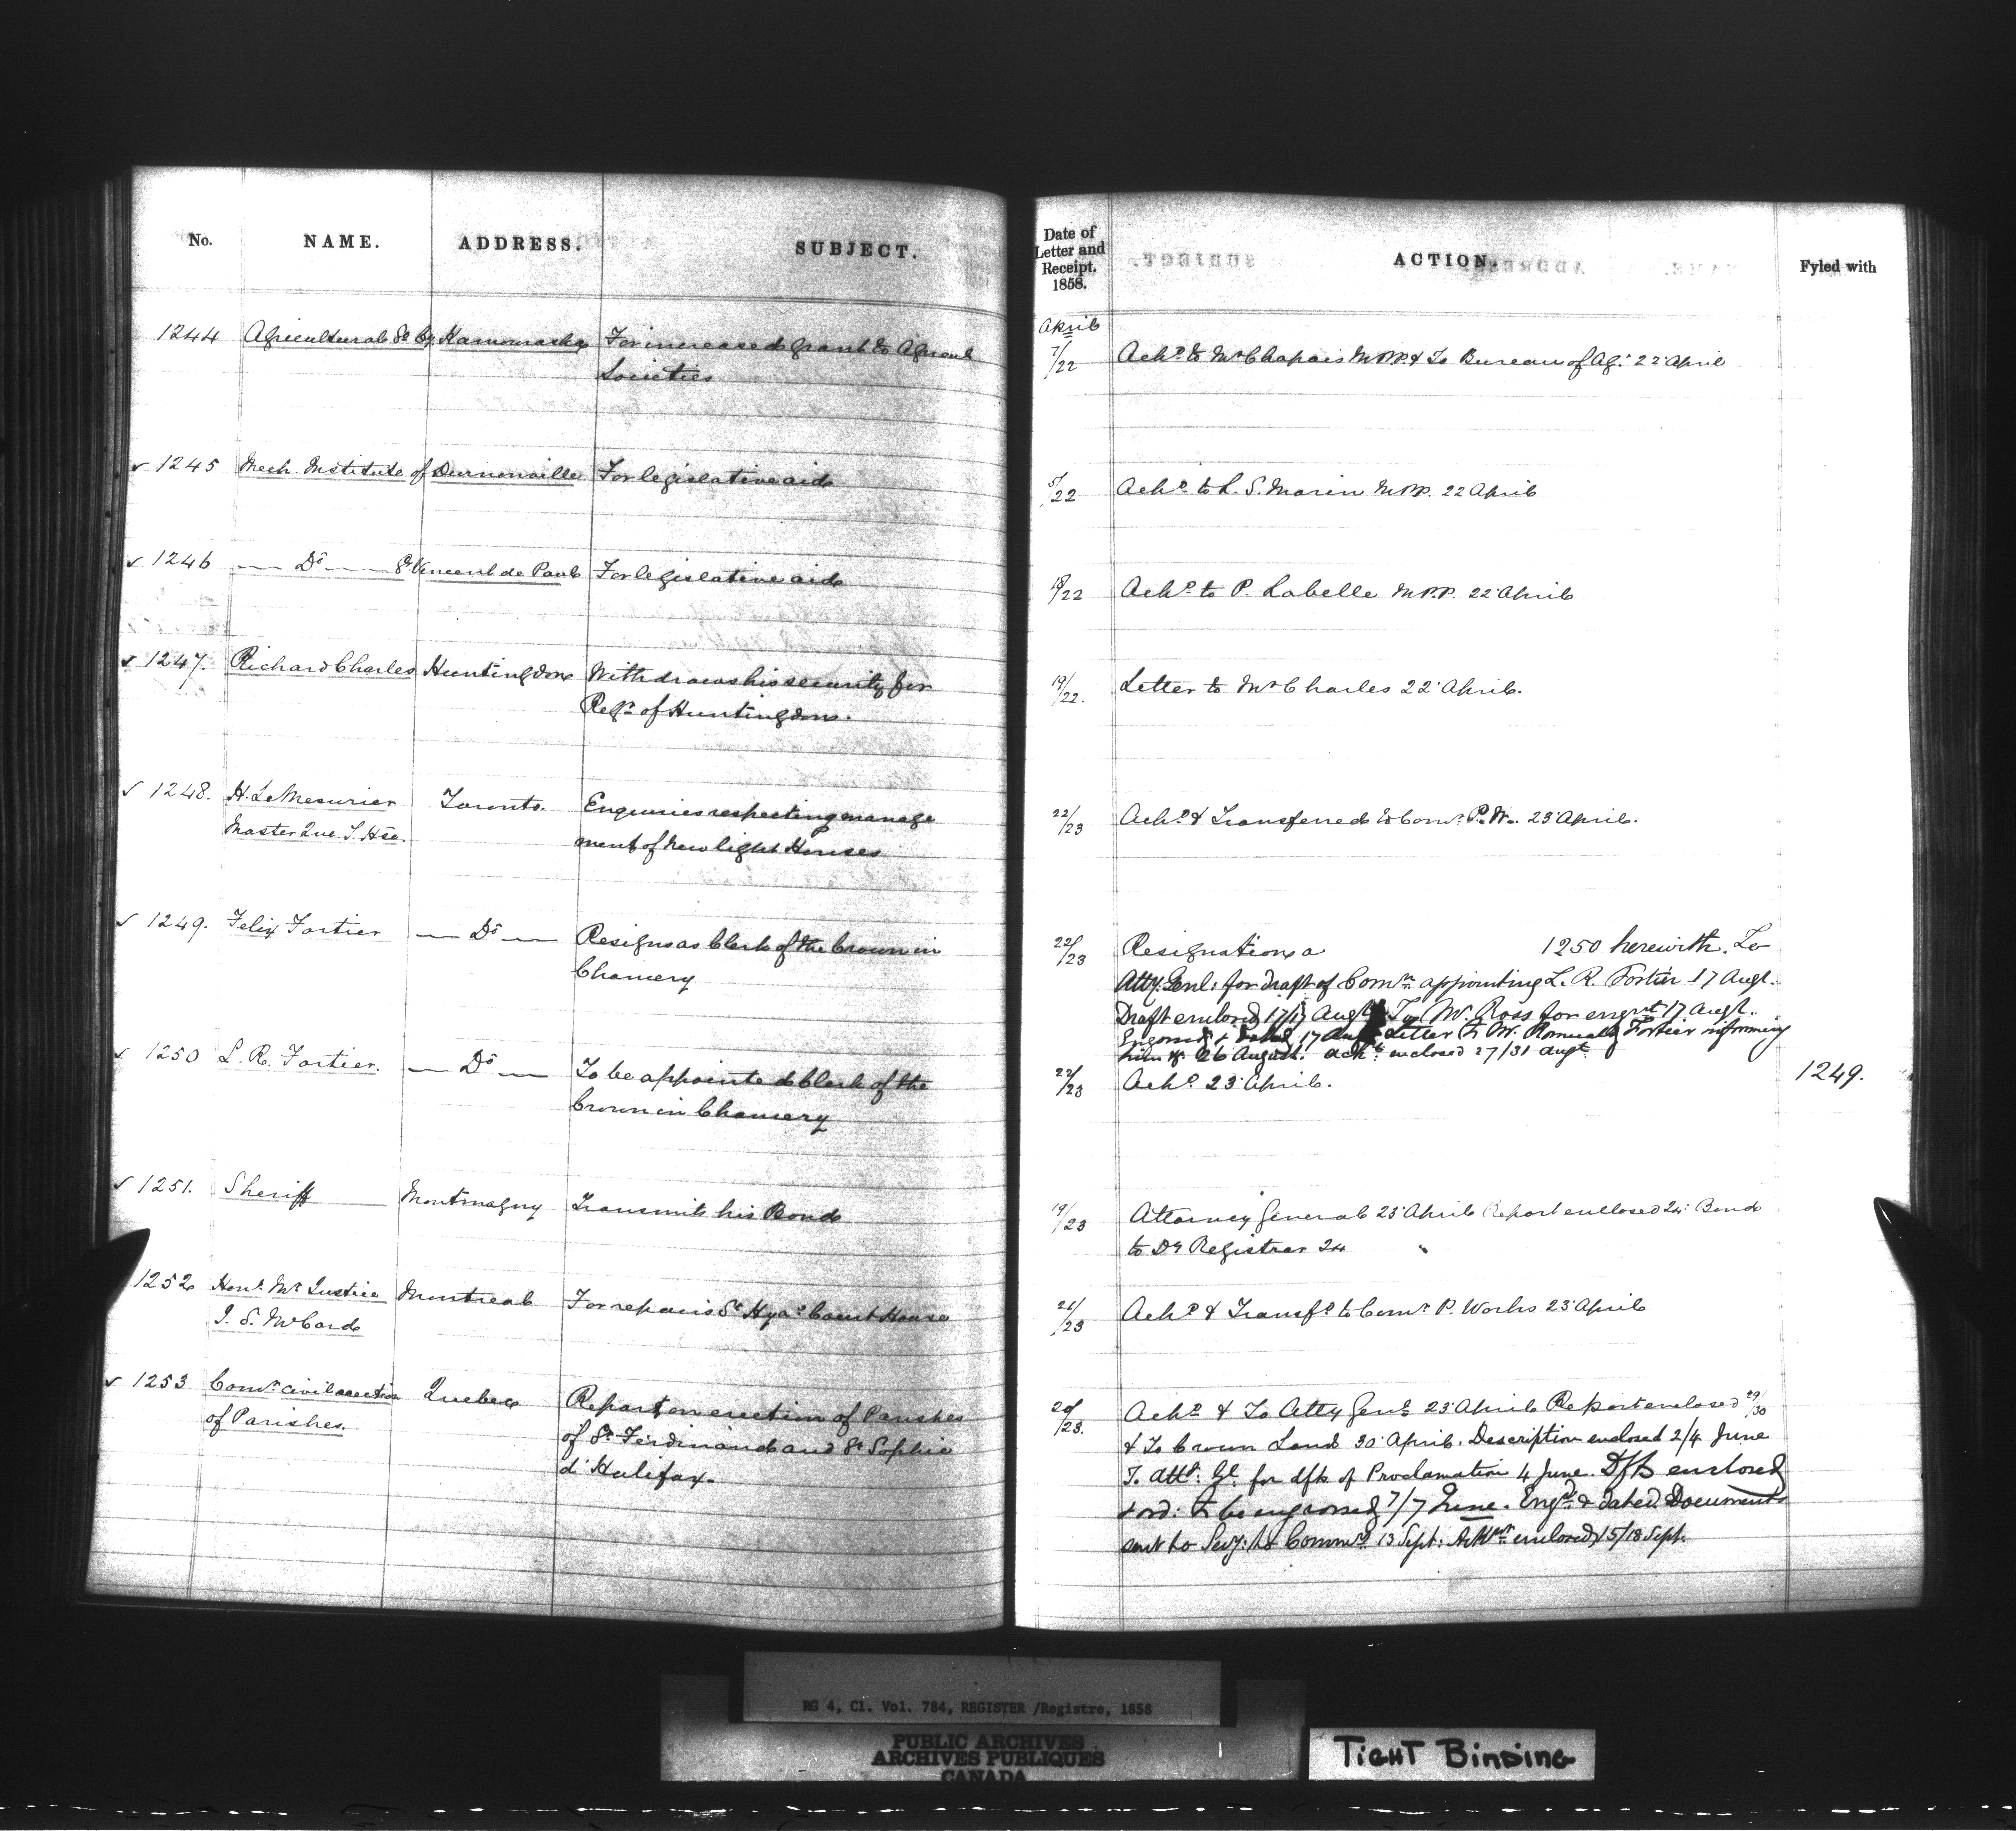 No. NAME. ADDRESS. SUBJECT.
Date of Letter and Receipt. 1858. ACTION. Fyled with
1244 Agricultural So Cy. Kamouraska For increased grant to Agricul
Societies
April
7/22 Ackd. to Mr Chapais M.P.P. & To Bureau of Ag: 22 April
1245 Mech. Institute of Durnonville For legislative aid
5/22 Ackd. to L. S. Morin M.P.P. 22 April
1246 — Do — St Vincent de Paul For legislative aid
18/22 Ackd. to P. Labelle M.P.P. 22 April
1247. Richard Charles Huntingdon Withdraws his security for
Regr. of Huntingdon.
19/22. Letter to Mr Charles 22 April.
1248. H. LeMesurier Toronto. Enquiries respecting manage
Master Que T. Hse. ment of new light Houses
22/23 Ackd. & Transferred to Comr. P. W. 23 April.
1249. Felix Fortier — Do — Resigns as Clerk of the Crown in
Chancery
22/23 Resignation a 1250 herewith. To
Atty. Genl: for draft of Comn. appointing L. R. Fortier 17 Augt.
Draft enclosed 17/17 Augt. To W. Ross for engrt 17 Augt.
Engrossd & dated 17 Aug Letter to W. Romuald Fortier informing
him &c 26 August. ackt. enclosed 27/31 augt
1250 L. R. Fortier. — Do — To be appointed Clerk of the
Crown in Chancery
22/23 Ackd. 23 April. 1249.
1251. Sheriff Montmagny Transmits his Bond
19/23 Attorney General 23 April Report enclosed 24. Bond
to Dy Registrar 24 "
1252 Honl. Mr Justice Montreal For repairs St Hyae. Court House
J. S. McCord
21/23 Ackd. & Transfd. to Comr. P. Works 23 April
1253 Comr. civil erection Quebec Report on erection of Parishes
of Parishes. of St. Ferdinand and St. Sophie
d'Halifax.
20/23. Ackd. & To Atty Genl. 23 April Report enclosed 29/30
& To Crown Land 30 April. Description enclosed 2/4 June
To Atty. Gl. for dft of Proclamation 4 June. Dft enclosed
& ord: to be engrossed 7/7 June. Engd. & dated Documents
sent to Secy: to Commrs. 13 Sept: Ackt. enclosed 15/18 Sept.
RG 4, C1. Vol. 784, REGISTER /Registre, 1858
PUBLIC ARCHIVES
ARCHIVES PUBLIQUES
CANADA
TIGHT BINDING